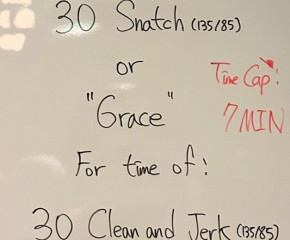 30 Snatch (135/85)
or
"Grace"
Time Cap:
7 MIN
For time of:
30 Clean and Jerk (135/85)